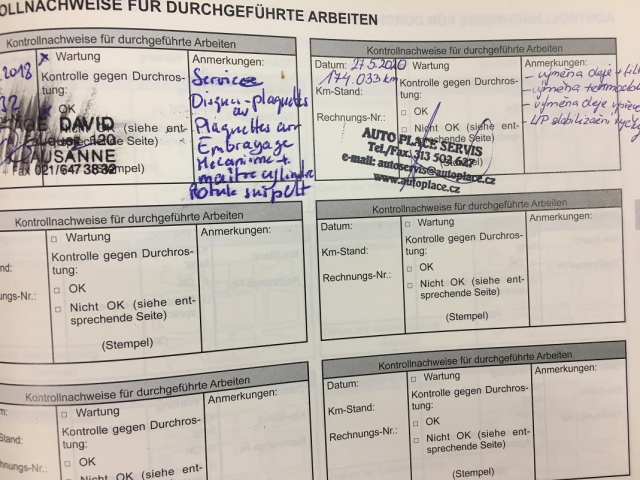 OLLNACHWEISE FÜR DURCHGEFÜHRTE ARBEITEN
Kontrollnachweise für durchgeführte Arbeiten
.2018
x Wartung
Kontrolle gegen Durchros-
tung:
x OK
Nicht OK (siehe ent-
sprechende Seite)
DAVID
20
AUSANNE
Fax 021/647 3832
Anmerkungen:
Services
Disques-plaquettes
av
Plaquettes arr
Embrayage
Mecanisme +
maitre cylindre
Rotule suspelt
Kontrollnachweise für durchgeführte Arbeiten
Datum: 27.5.2020
174.033 km
Km-Stand:
Rechnungs-Nr.:
Wartung
Kontrolle gegen Durchros-
tung:
OK
Nicht OK (siehe ent-
sprechende Seite)
(Stempel)
AUTO PLACE SERVIS
Tel./Fax: 313 502 627
e-mail: autoservis@autoplace.cz
www.autoplace.cz
Anmerkungen:
- výměna oleje + filt
- výměna
- výměna oleje
- L/P stabilizační tyč
Kontrollnachweise für durchgeführte Arbeiten
nd:
ungs-Nr.:
Wartung
Kontrolle gegen Durchros-
tung:
OK
Nicht OK (siehe ent-
sprechende Seite)
(Stempel)
Anmerkungen:
Kontrollnachweise für durchgeführte Arbeiten
Datum:
Km-Stand:
Rechnungs-Nr.:
Wartung
Kontrolle gegen Durchros-
tung:
OK
Nicht OK (siehe ent-
sprechende Seite)
(Stempel)
Anmerkungen:
Kontrollnachweise für durchgeführte Arbeiten
m:
Stand:
hnungs-Nr.:
Wartung
Kontrolle gegen Durchros-
tung:
OK
Nicht OK (siehe ent-
Anmerkungen:
Kontrollnachweise für durchgeführte Arbeiten
Datum:
Km-Stand:
Rechnungs-Nr.:
Wartung
Kontrolle gegen Durchros-
tung:
OK
Nicht OK (siehe ent-
sprechende Seite)
(Stempel)
Anmerkungen: